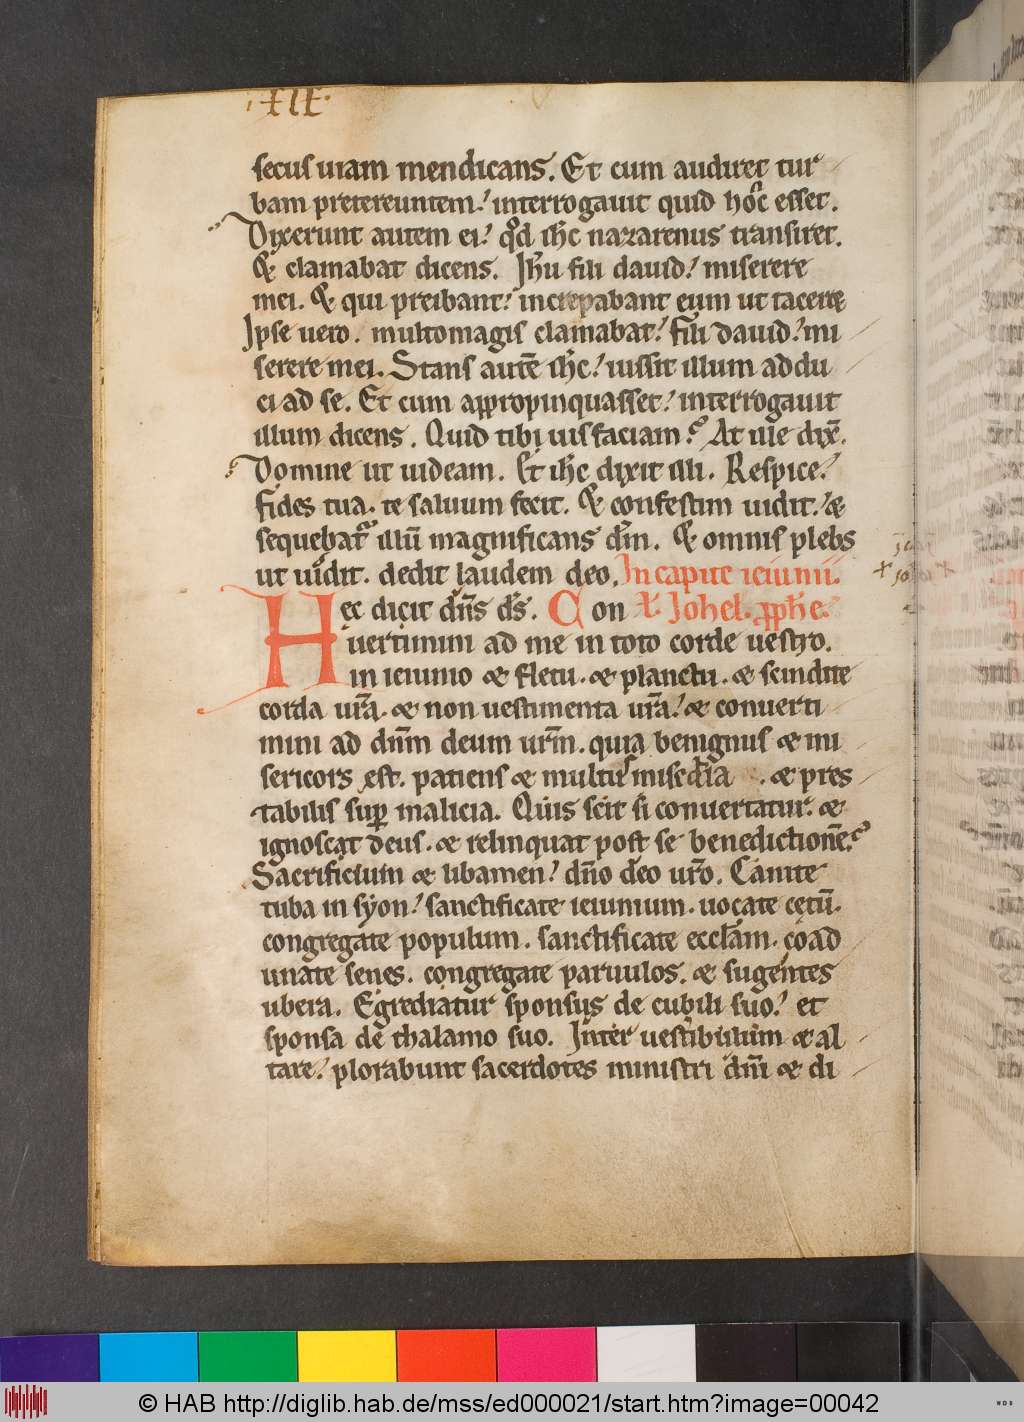 secus uiam mendicans. Et cum audiret tur
bam pretereuntem. interrogauit quid hoc esset.
Dixerunt autem ei. qd ihc nazarenus transiret.
& clamabat dicens. Jhu fili dauid. miserere
mei. & qui preibant. increpabant eum ut taceret
Ipse uero. multomagis clamabat. fili dauid. mi
serere mei. Stans autē ihc. iussit illum addu
ci ad se. Et cum appropinquasset. interrogauit
illum dicens. Quid tibi uis faciam? At ille dix̄.
Domine ut uideam. Et ihc dixit illi. Respice.
fides tua. te saluum fecit. & confestim uidit. &
sequebatur illū magnificans dm̄. & omnis plebs
ut uidit. dedit laudem deo. In capite ieiunii.
Hec dicit dn̄s ds̄. Con Johel. pphe.
uertimini ad me in toto corde uestro.
in ieiunio & fletu. & planctu. & scindite
corda ur̄a. & non uestimenta ur̄a. & conuerti
mini ad dn̄m deum ur̄m. quia benignus & mi
sericors est. patiens & multe misedia. & pres
tabilis sup malicia. Quis scit si conuertatur. &
ignoscat deus. & relinquat post se benedictionē?
Sacrificium & libamen. dn̄o deo ur̄o. Canite
tuba in syon. sanctificate ieiunium. uocate cetū.
congregate populum. sanctificate eccl̄am. coad
unate senes. congregate paruulos. & sugentes
ubera. Egrediatur sponsus de cubili suo. et
sponsa de thalamo suo. Inter uestibulum & al
tare. plorabunt sacerdotes ministri dn̄i & di
© HAB http://diglib.hab.de/mss/ed000021/start.htm?image=00042